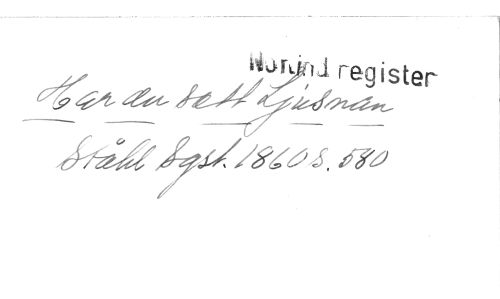 Norind register
Har du sett Ljusnan
Ståhl Sgst. 1860 s. 580